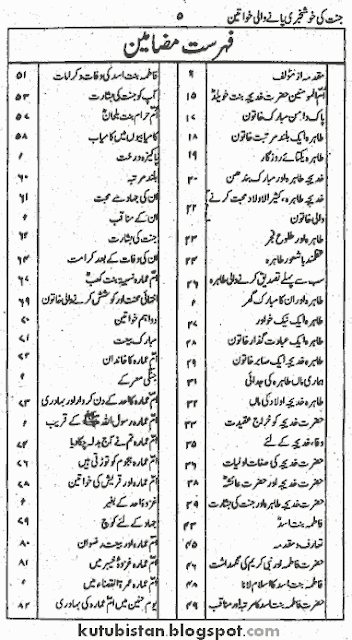 جنت کی خوشخبری پانے والی خواتین ۵
فہرست مضامین
مقدمہ از مؤلف ۹
ام المومنین حضرت خدیجہ بنت خویلدؓ ۱۵
پاک دامن مبارک خاتون ۱۷
طاہرہ ایک بلند مرتبت خاتون ۱۸
طاہرہ یکتائے روزگار ۱۹
خدیجہ طاہرہ اور مبارک بندھن ۲۰
خدیجہ طاہرہ، کثیر الاولاد محبت کرنے
والی خاتون ۲۲
طاہرہ اور طلوع فجر ۲۳
عقلمند باشعور طاہرہ ۲۴
سب سے پہلے تصدیق کرنے والی طاہرہ ۲۶
طاہرہ اور ان کا مبارک گھر
طاہرہ ایک نیک خو اور ۲۷
طاہرہ ایک عبادت گذار خاتون ۲۸
طاہرہ خدیجہ ایک صابر خاتون ۲۹
ہماری ماں طاہرہ کی جدائی ۳۱
طاہرہ خدیجہ اولاد کی ماں ۳۲
حضرت خدیجہ کو خراج عقیدت ۳۳
وفاء خدیجہ کے لئے ۳۵
حضرت خدیجہ کی صفات اولیات ۳۶
حضرت خدیجہ اور حضرت عائشہؓ ۳۸
حضرت خدیجہ طاہرہ اور جنت کی بشارت ۳۹
فاطمہ بنت اسدؓ ۴۳
تعارف و مقدمہ ۴۵
حضرت فاطمہ اور نبی کریم کی نگہداشت ۴۶
حضرت فاطمہ بنت اسد کا اسلام لانا ۴۸
حضرت فاطمہ بنت اسد کا مرتبہ اور مناقب ۴۹
فاطمہ بنت اسد کی وفات و کرامات ۵۱
آپ کو جنت کی بشارت ۵۳
ام حرام بنت ملحانؓ ۵۷
کامیابیوں میں کامیاب ۵۸
پاکیزہ درخت
بلند مرتبہ ۶۰
ان کی جہاد سے محبت ۶۱
ان کے مناقب
جنت کی بشارت ۶۲
ان کی وفات کے بعد کرامت ۶۴
ام عمارہ نسیبہ بنت کعبؓ ۶۷
انتہائی محنت اور کوشش کرنے والی خاتون ۶۹
دو اہم خواتین ۷۰
مبارک بیعت ۷۱
ام عمارہ کا خاندان ۷۲
جنگی معرکے
ام عمارہ کا احد کے دن کردار اور بہادری ۷۳
ام عمارہ رسول اللہ ﷺ کے قریب
ام عمارہ تم نے آج بدلہ چکا دیا ۷۴
ام عمارہ ہجوم کو توڑتی ہیں ۷۶
ام عمارہ اور قریش کی خواتین ۷۸
غزوہ احد کے بعد
جہاد کے لئے کوچ ۷۹
ام عمارہ اور بیعت رضوان ۸۰
ام عمارہ غزوہ خیبر میں ۸۱
ام عمارہ عمرۃ القضاء میں
یوم حنین میں ام عمارہ کی بہادری ۸۲
kutubistan.blogspot.com